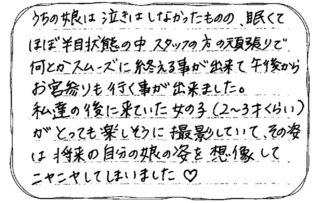 うちの娘は泣きはしなかったものの、眠くて
ほぼ半目状態の中スタッフの方の頑張りで
何とかスムーズに終える事が出来て午後から
お宮参りも行く事が出来ました。
私達の後に来ていた女の子(2~3才くらい)
がとっても楽しそうに撮影していて、その姿
は将来の自分の娘の姿を想像して
ニヤニヤしてしまいました♡